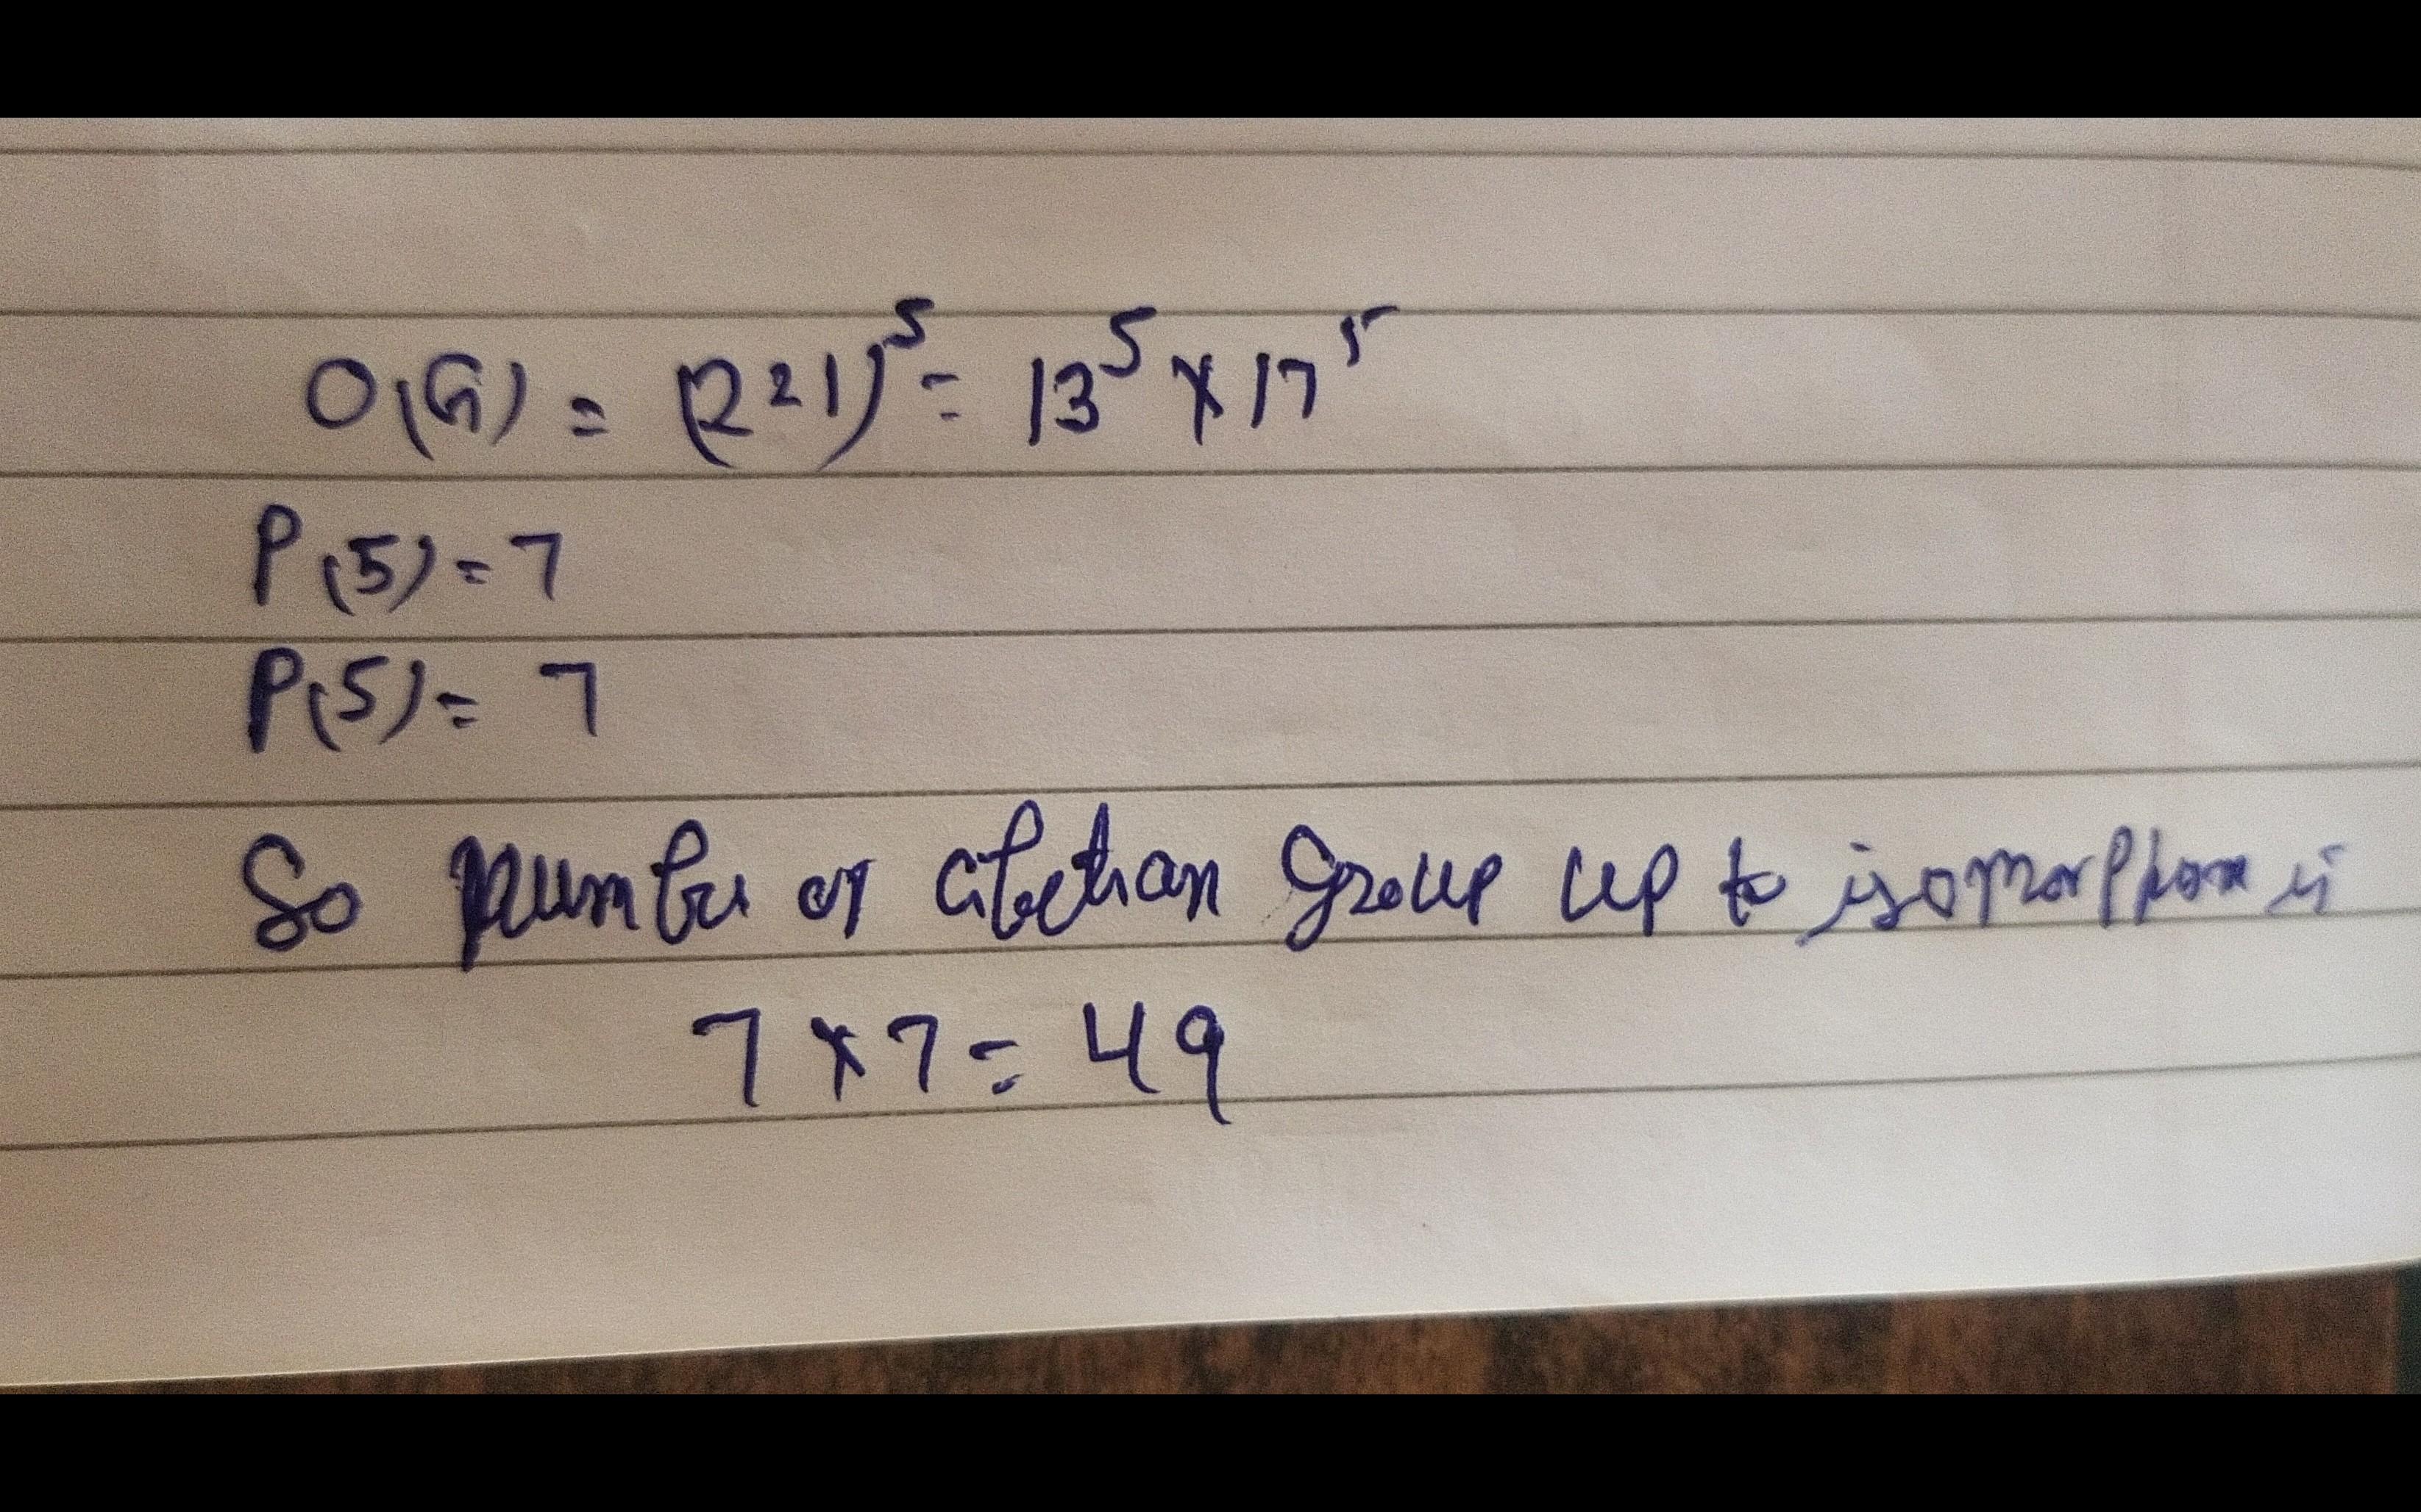 O(G) = (221)^5 = 13^5 × 17^5
P(5) = 7
P(5) = 7
So number of abelian group up to isomorphism is
7 × 7 = 49